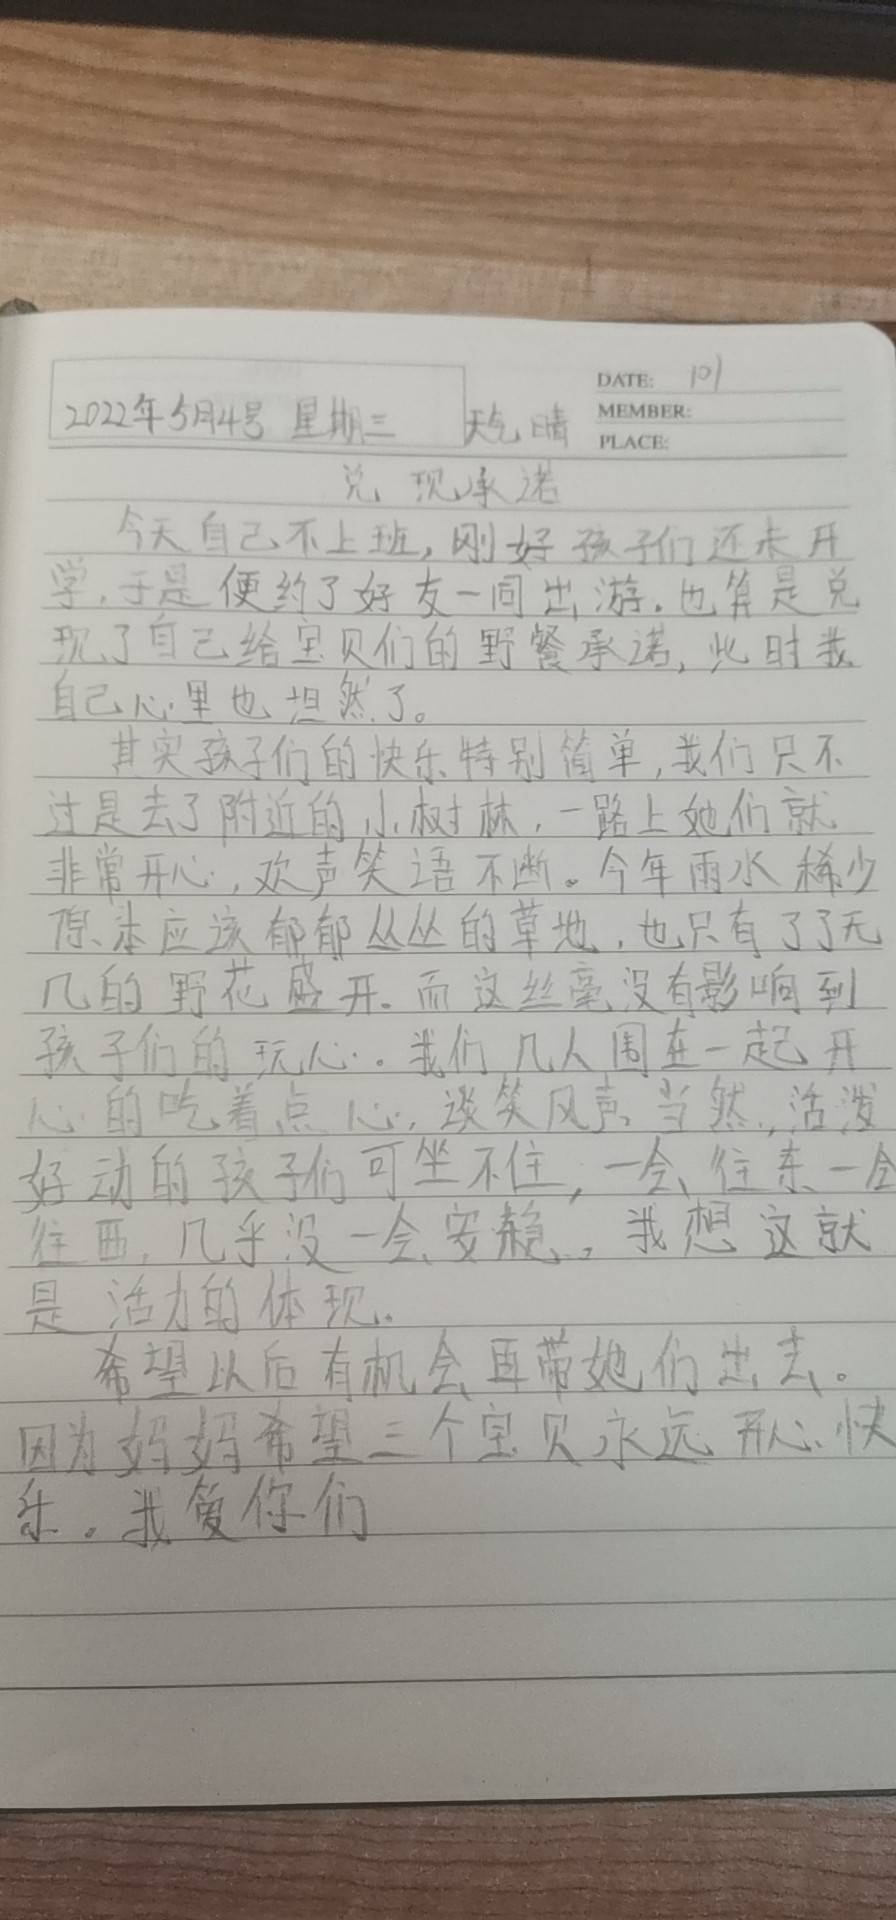 DATE: 101
2022年5月4号 星期三 天气 晴
MEMBER:
PLACE:
兑现承诺
今天自己不上班,刚好孩子们还未开
学,于是便约了好友一同出游。也算是兑
现了自己给宝贝们的野餐承诺,此时我
自己心里也坦然了。
其实孩子们的快乐特别简单,我们只不
过是去了附近的小树林,一路上她们就
非常开心,欢声笑语不断。今年雨水稀少
原本应该郁郁丛丛的草地,也只有了了无
几的野花盛开。而这丝毫没有影响到
孩子们的玩心。我们几人围在一起开
心的吃着点心,谈笑风声。当然,活泼
好动的孩子们可坐不住,一会往东一会
往西,几乎没一会安静。我想这就
是活力的体现。
希望以后有机会再带她们出去。
因为妈妈希望三个宝贝永远开心、快
乐。我爱你们